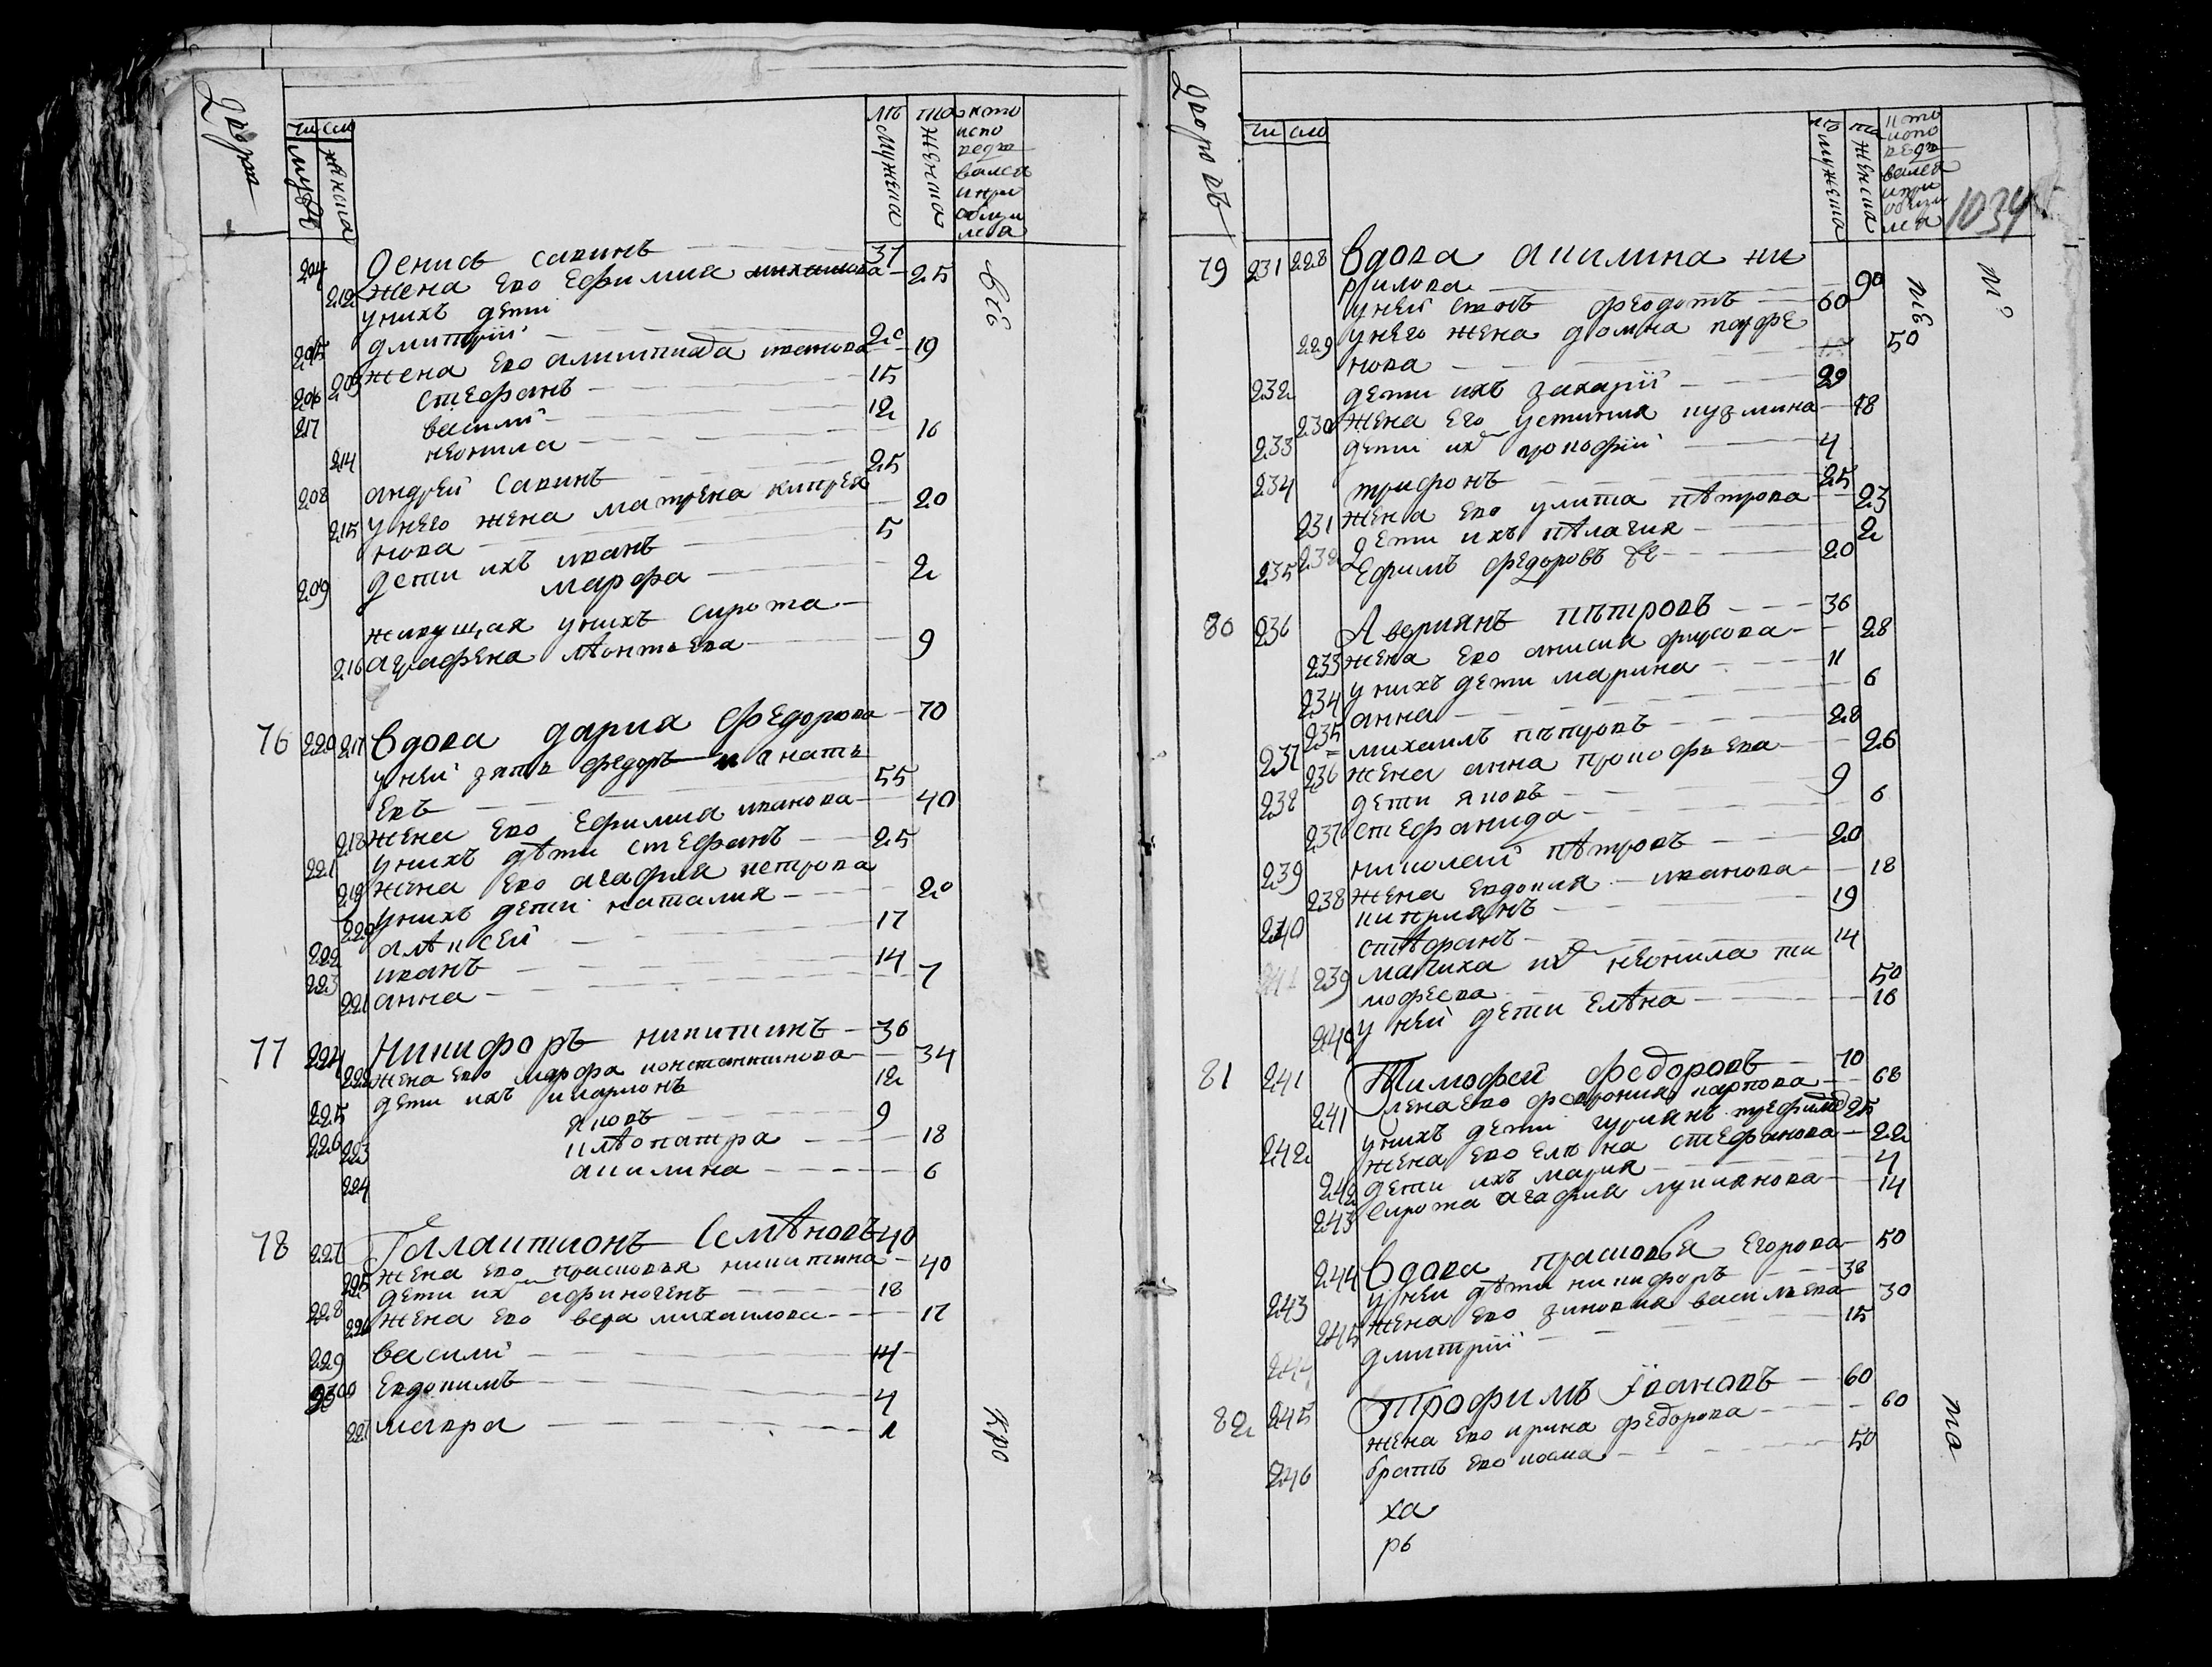 Дворовъ
чи сло
мужс
женска
лѣ та
мужеска
женска
кто
испо
ведо
вался
и при
общи
лся
204 Денисъ савинъ — 37
212 жена ево Ефимиа михаилова — 25
у нихъ дети
205 дмитрїй — 20
203 жена ево алимпиада иванова — 19
206 стефанъ — 15
217 васили — 12
214 неонила — 16
208 андрей Савинъ — 25
215 у него жена матрена кипрея
нова — 20
209 дети ихъ иванъ — 5
марфа — 2
живущая у нихъ сирота
216 аграфена лѣонтьева — 9
76 220 217 Вдова дария Федорова — 70
у ней зять федоръ игнать
евъ — 55
218 жена ево Ефимиа иванова — 40
221 у нихъ дѣти стефанъ — 25
219 жена ево агафия петрова
220 у нихъ дети наталия — 20
222 алѣксей — 17
223 иванъ — 14
221 анна — 7
77 224 Никифоръ никитинъ — 36
222 жена ево марфа константинова — 34
225 дети ихъ иларионъ — 12
226 яковъ — 9
223 клѣопатра — 18
224 акилина — 6
78 227 Галактионъ Семѣновъ 40
225 жена ево прасковья никитина — 40
228 дети их афиногенъ — 18
226 жена ево вера михаилова — 17
229 васили — 14
2300 Евдокимъ — 4
221 мавра — 1
всѣ
кро
Дворовъ
чи сло
лѣ та
мужеска
женска
кто
испо
ведо
вался
и при
общи
лся
1034
79 231 228 Вдова акилина ки
рилова — 90
у ней сынъ феодотъ — 60
229 у него жена домна парфе
нова — 50
232 дети ихъ захарїй — 29
230 жена Его устиния кузмина — 28
233 дети их прокофїй — 4
234 трифонъ — 25
231 жена ево улита пѣтрова — 23
232 дети ихъ пѣлагия — 2
235 Ефимъ федоровъ — 20
80 236 Авериянъ пѣтровъ — 36
233 жена ево анисия фирсова — 28
234 у нихъ дети марина — 11
235 анна — 6
237 михаилъ пѣтровъ — 28
236 жена анна прокофьева — 26
238 дети яковъ — 9
237 стефанида — 6
239 николай пѣтровъ — 20
238 жена евдокия — иванова — 18
240 киприянъ — 19
стѣфанъ — 14
239 мачиха их неонила ти
мофеева — 50
240 у ней дети Елѣна — 16
81 241 Тимофей федоровъ — 70
241 жена ево феврония карпова — 68
242 у нихъ дети гуриянъ 25
жена ево елена стефанова — 22
242 дети ихъ мария — 4
243 сирота агафия лукиянова — 14
244 Вдова прасковья Егорова — 50
243 у ней дѣти никифоръ — 38
245 жена ево зиновия васильева — 30
244 дмитрїй — 15
82 245 Трофимъ Ївановъ — 60
жена ево ирина федорова — 60
246 братъ ево козма — 50
ха
рь
мѣ
та